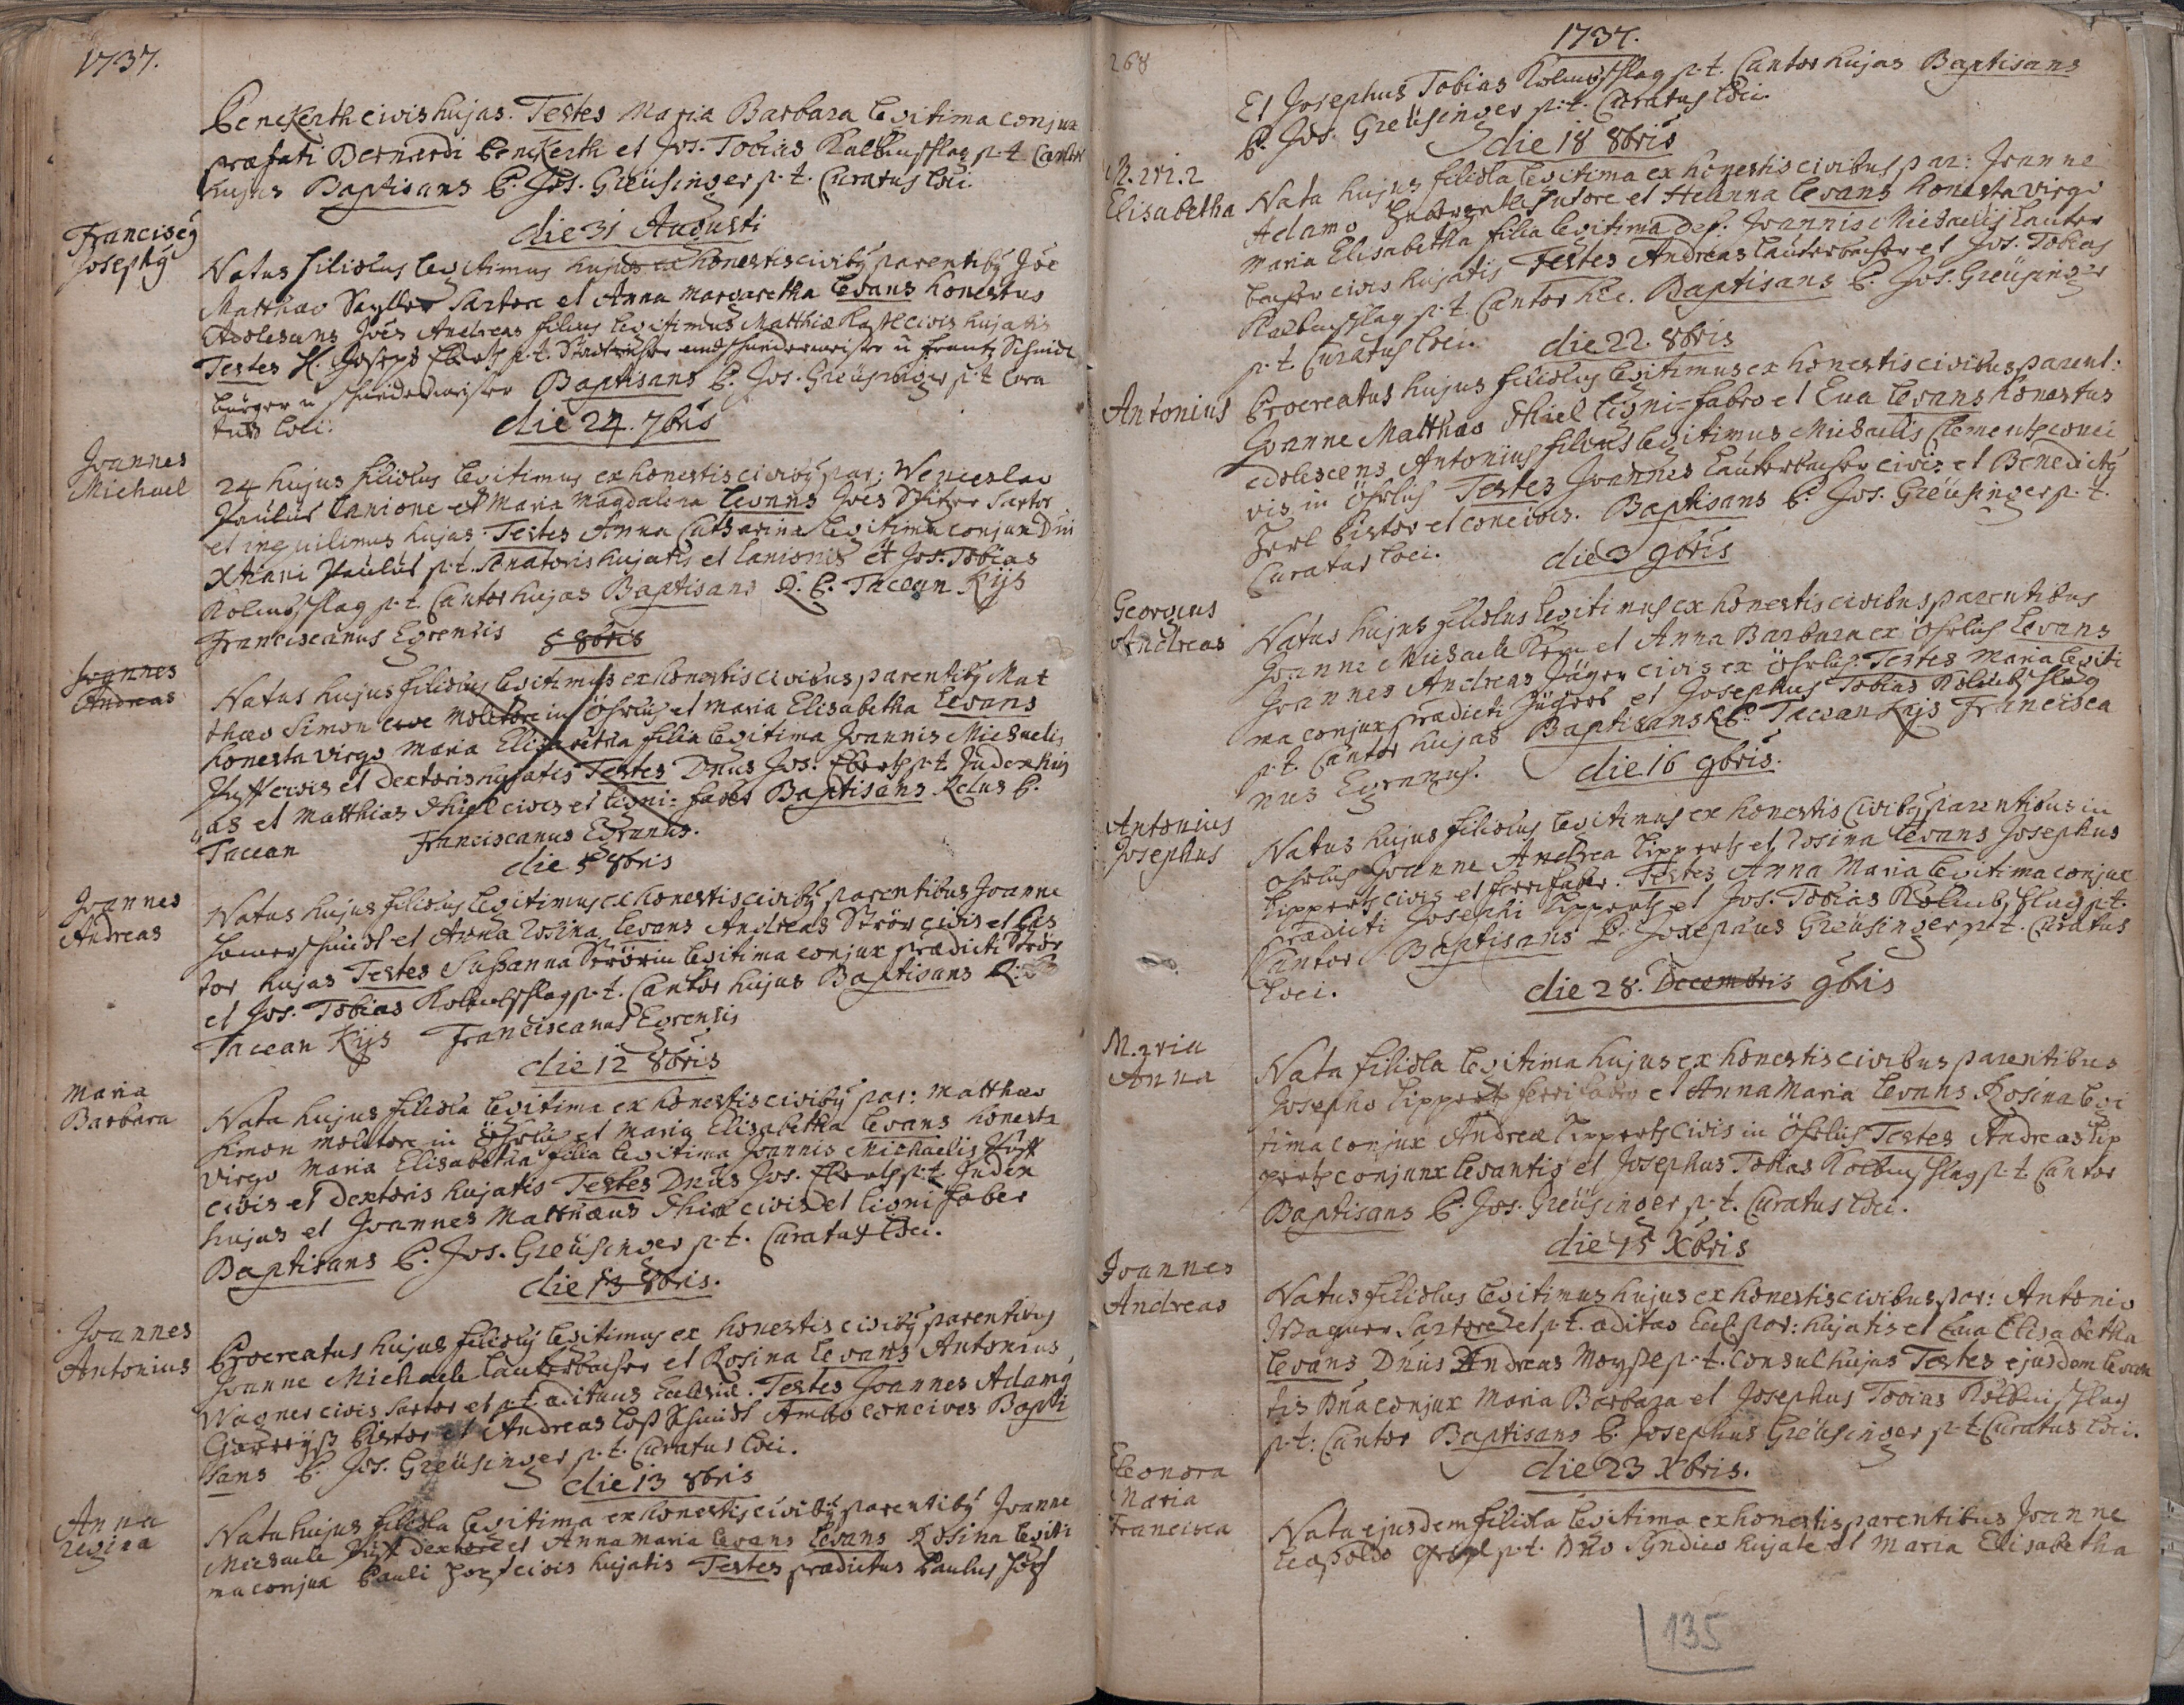 1737.
Penckerth civis hujas. Testes Maria Barbara legitima conjux
præfati Bernardi Penckerth et Jos. Tobias Kolbensschlag p.t. Cantor
hujus Baptisans P. Jos. Greüsinger p.t. Curatus loci.
die 31 Augusti
Franciscq
Josephq
Natus filiolus legitimus hujus ex honestis civibq parentibq Joe
Matthæo Sartore et Anna Margaretha Levans honestus
Adolescens Joes Andreas filius legitimus Matthiæ civis hujatis
Testes H. Joseph Eberth p.t. Stadtrichter und schneidermeister u Frantz Schmidt
bürger u schneidermeister Baptisans P. Jos. Greüsinger p.t. Cura
tus loci.
die 24. 7bris
Joannes
Michael
24 hujus filiolus legitimus ex honestis civibq par: Wenceslao
Paulus Lanione et Maria Magdalena Levans Joes Sartor
et inquilinus hujas. Testes Anna Catharina legitima conjux Dni
Xtiani Paulus p.t. Senatoris hujatis et Lanionis et Jos. Tobias
Kolbensschlag p.t. Cantor hujas Baptisans R. P. Tacean Kijs
Franciscanus Egrensis
8 8bris
Joannes
Andreas
Natus hujus filiolus legitimus ex honestis civibus parentibq Mat
thæo Simon cive Molitore in et Maria Elisabetha Levans
honesta virgo Maria Elisabetha filia legitima Joannis Michaelis
civis et dextoris hujatis Testes Dnus Jos. Eberth p.t. Judex huj
as et Matthias Thiel civis et ligni-faber Baptisans Rdus P.
Tacean Franciscanus Egranus.
die 5 8bris
Joannes
Andreas
Natus hujus filiolus legitimus ex honestis civibq parentibus Joanne
Hamerschmidt et Anna Rosina, Levans Andreas Strör civis et Pis
tor hujas Testes Susanna Strörin legitima conjux prædicti Strör
et Jos. Tobias Kolbensschlag p.t. Cantor hujus Baptisans R. P.
Tacean Kijs Franciscanus Egrensis
die 12 8bris
Maria
Barbara
Nata hujus filiola legitima ex honestis civibq par: Matthæo
Simon molitore in et Maria Elisabetha Levans honesta
virgo Maria Elisabetha filia legitima Joannis Michaelis
civis et dextoris hujatis Testes Dnus Jos. Eberth p.t. Judex
hujus et Joannes Matthæus Thiel civis et ligni faber
Baptisans P. Jos. Greüsinger p.t. Curatus loci.
die 13 8bris.
Joannes
Antonius
Procreatus hujus filiolus legitimus ex honestis civibq parentibus
Joanne Michaele Lauterbacher et Rosina Levans Antonius
Wagner civis sartor et p.t. ædituus Ecclesiæ. Testes Joannes Adamq
Pistor et Andreas Schmidt Ambo concives Bapti
sans P. Jos. Greüsinger p.t. Curatus loci.
die 13 8bris
Anna
regina
Nata hujus filiola legitima ex honestis civibq parentibq Joanne
Michaele dextore et Anna Maria Levans Levans Rosina legiti
ma conjux Pauli civis hujatis Testes prædictus Paulus
268
1737.
Et Josephus Tobias Kolbensschlag p.t. Cantor hujas Baptisans
P. Jos. Greüsinger p.t. Curatus loci.
die 18 8bris
Maria
Elisabetha
Nata hujus filiola legitima ex honestis civibus par: Joanne
Adamo sutore et Helenna Levans honesta virgo
Maria Elisabetha filia legitima def. Joannis Michaelis Lauter
bacher civis hujatis Testes Andreas Lauterbacher et Jos. Tobias
Kolbensschlag p.t. Cantor hic. Baptisans P. Jos. Greüsinger
p.t. Curatus loci.
die 22. 8bris
Antonius
Procreatus hujus filiolus legitimus ex honestis civibus parent:
Joanne Matthæo Thiel ligni-fabro et Eva Levans honestus
adolescens Antonius filius legitimus Michaelis Clement conci
vis in Testes Joannes Lauterbacher civis et Benedictq
Pistor et concivis. Baptisans P. Jos. Greüsinger p.t.
Curatus loci.
die 3 9bris
Georgius
Andreas
Natus hujus filiolus legitimus ex honestis civibus parentibus
Joanne Michaele et Anna Barbara ex Levans
Joannes Andreas Jäger civis ex Testes Maria legiti
ma conjux prædicti Jägers et Josephus Tobias Kolbensschlag
p.t. Cantor hujas Baptisans R. P. Tacean Kijs Francisca
nus Egranus.
die 16 9bris.
Antonius
Josephus
Natus hujus filiolus legitimus ex honestis civibq parentibus in
Joanne Andrea Lippert et Rosina Levans Josephus
Lippert civis et ferrifaber. Testes Anna Maria legitima conjux
prædicti Josephi Lippert et Jos. Tobias Kolbensschlag p.t.
Cantor Baptisans P. Josephus Greüsinger p.t. Curatus
loci.
die 28. Decembris 9bris
Maria
Anna
Nata filiola legitima hujus ex honestis civibus parentibus
Josepho Lippert ferrifabro et Anna Maria Levans Rosina legi
tima conjux Andreæ Lippert civis in Testes Andreas Lip
pert conjunx levantis et Josephus Tobias Kolbensschlag p.t. Cantor
Baptisans P. Jos. Greüsinger p.t. Curatus loci.
die 15 Xbris
Joannes
Andreas
Natus filiolus legitimus hujus ex honestis civibus par: Antonio
Wagner Sartore et p.t. ædituo Eccl. par: hujatis et Eva Elisabetha
Levans Dnus Andreas Moyse p.t. Consul hujus Testes ejusdem levan
tis Dna conjux Maria Barbara et Josephus Tobias Kolbensschlag
p.t: Cantor Baptisans P. Josephus Greüsinger p.t. Curatus loci.
die 23 Xbris.
Eleonora
Maria
Francisca
Nata ejusdem filiola legitima ex honestis parentibus Joanne
Leopoldo p.t. Dno Syndico hujate et Maria Elisabetha
135